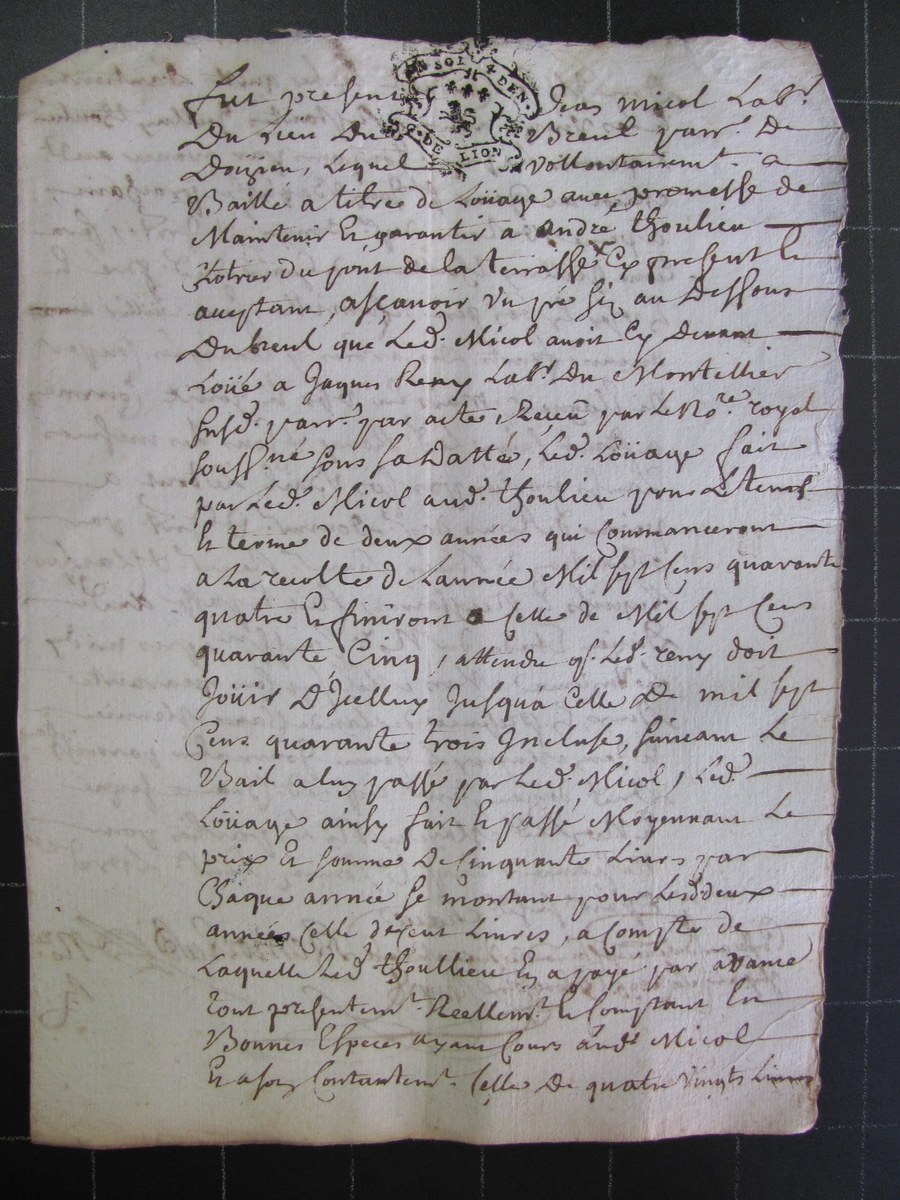 UN SOL 4 DEN.
G. DE LION
Fut present Jean micol Lab.r
Du Lieu Du Breuil parr.e De
Doizieu, Lequel vollontairem.t a
Baillé a titre de Loüage avec promesse de
Maintenir Et garantir a andré thoulieu
hotrer du pont de la terrasse Cy present Et
aceptant, asçavoir Un pré Siz au Dessous
Du breul que Led. Micol avoit Cy Devant
Loüé a Jaques Remy Lab.r Du Montellier
susd. parr.e par acte, Receu par Le No.re royal
souss.né sous sa Datte, Led. Loüage fait
par Led. Micol aud. thoulieu pour Le temps
Et terme de deux années qui Commanceront
a La recolte de Lannée Mil sept Cens quarante
quatre Et finiront a Celle de Mil sept Cens
quarante Cinq, attendu q. Led. remy doit
Joüir D'Jcelluy Jusqua Celle De mil sept
Cens quarante trois Incluse, suivant Le
Bail a luy passé par Led. Micol, Led.
Loüage ainsy fait Et passé Moyennant Le
prix Et somme De Cinquante Livres par
Chaque année se montant pour Lesd. deux
années Celle de Cent Livres, a Compte de
Laquelle Led. thoullieu En a payé par avance
tout presentem.t Reellem.t Et Comptant En
Bonnes Especes ayant Cours aud. Micol
Et a son Contantem.t Celle De quatre vingts Livres